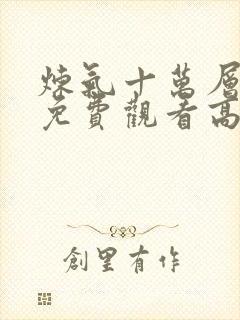 煉氣十萬層
免費觀看高
創里有作